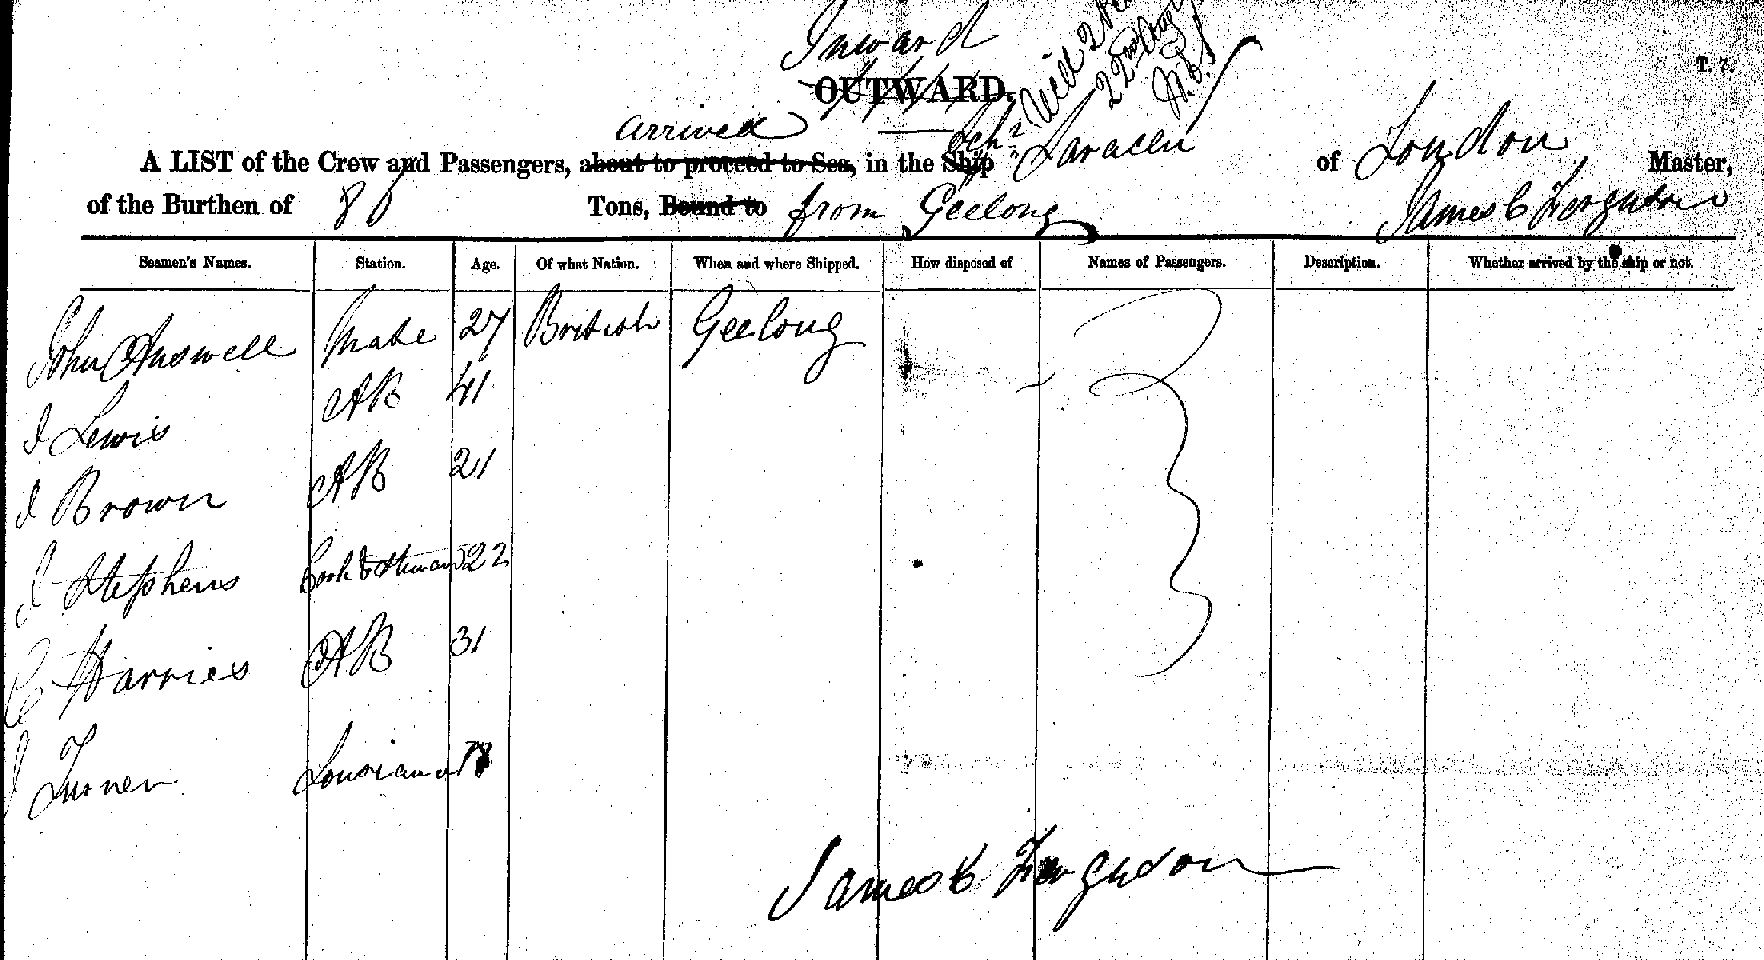 Inward
OUTWARD.
22nd Aug
T. 7.
arrived
A LIST of the Crew and Passengers, about to proceed to Sea, in the Ship Schr Saracen of London Master,
of the Burthen of Tons, Bound to from Geelong James C Ferguson
Seamen's Names. Station. Age. Of what Nation. When and where Shipped. How disposed of Names of Passengers. Description. Whether arrived by the ship or not.
John Mate 27 British Geelong
J Lewis AB 41
J Brown AB 21
J Stephens Cook & Steward 22
C Harries AB 31
J Turner
James C Ferguson